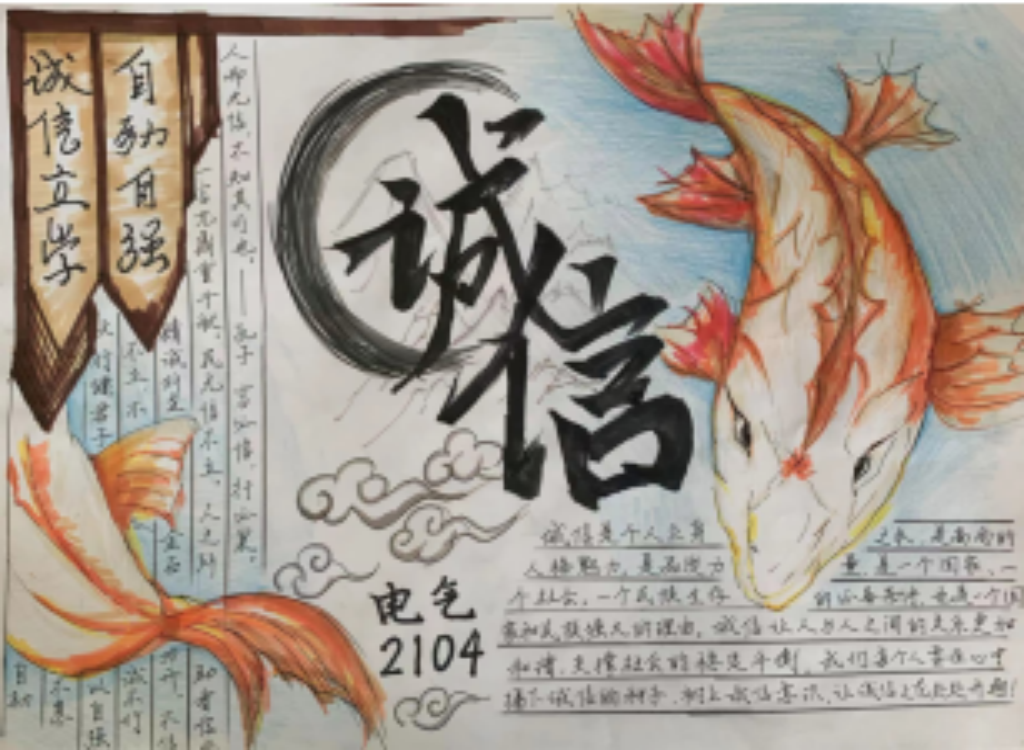 诚信立学
自助自强
人而无信，不知其可也。——孔子 言必信，行必果。
一言九鼎重千秋，民无信不立。人之所
精诚所至
金石
不立 不
天行健君子
以自强
自助
诚信
电气
2104
诚信是个人立身之本，是高尚的
人格魅力，是品德力量，是一个国家、一
个社会、一个民族生存的必备条件，也是一个国
家和民族强大的理由，诚信让人与人之间的关系更加
和谐，支撑社会的稳定平衡，我们每个人要在心中
播下诚信的种子，树立诚信意识，让诚信之花处处开遍！